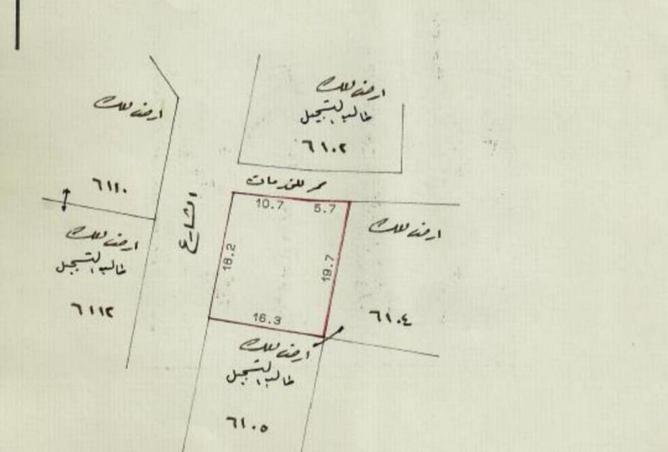 ارض للملك
طالب التسجيل
٦١٠٢
ارض للملك
٦١١٠
ممر للخدمات
10.7
5.7
الشارع
ارض للملك
ارض للملك
طالب التسجيل
18.2
19.7
٦١١٢
16.3
٦١٠٤
ارض للملك
طالب التسجيل
٦١٠٥